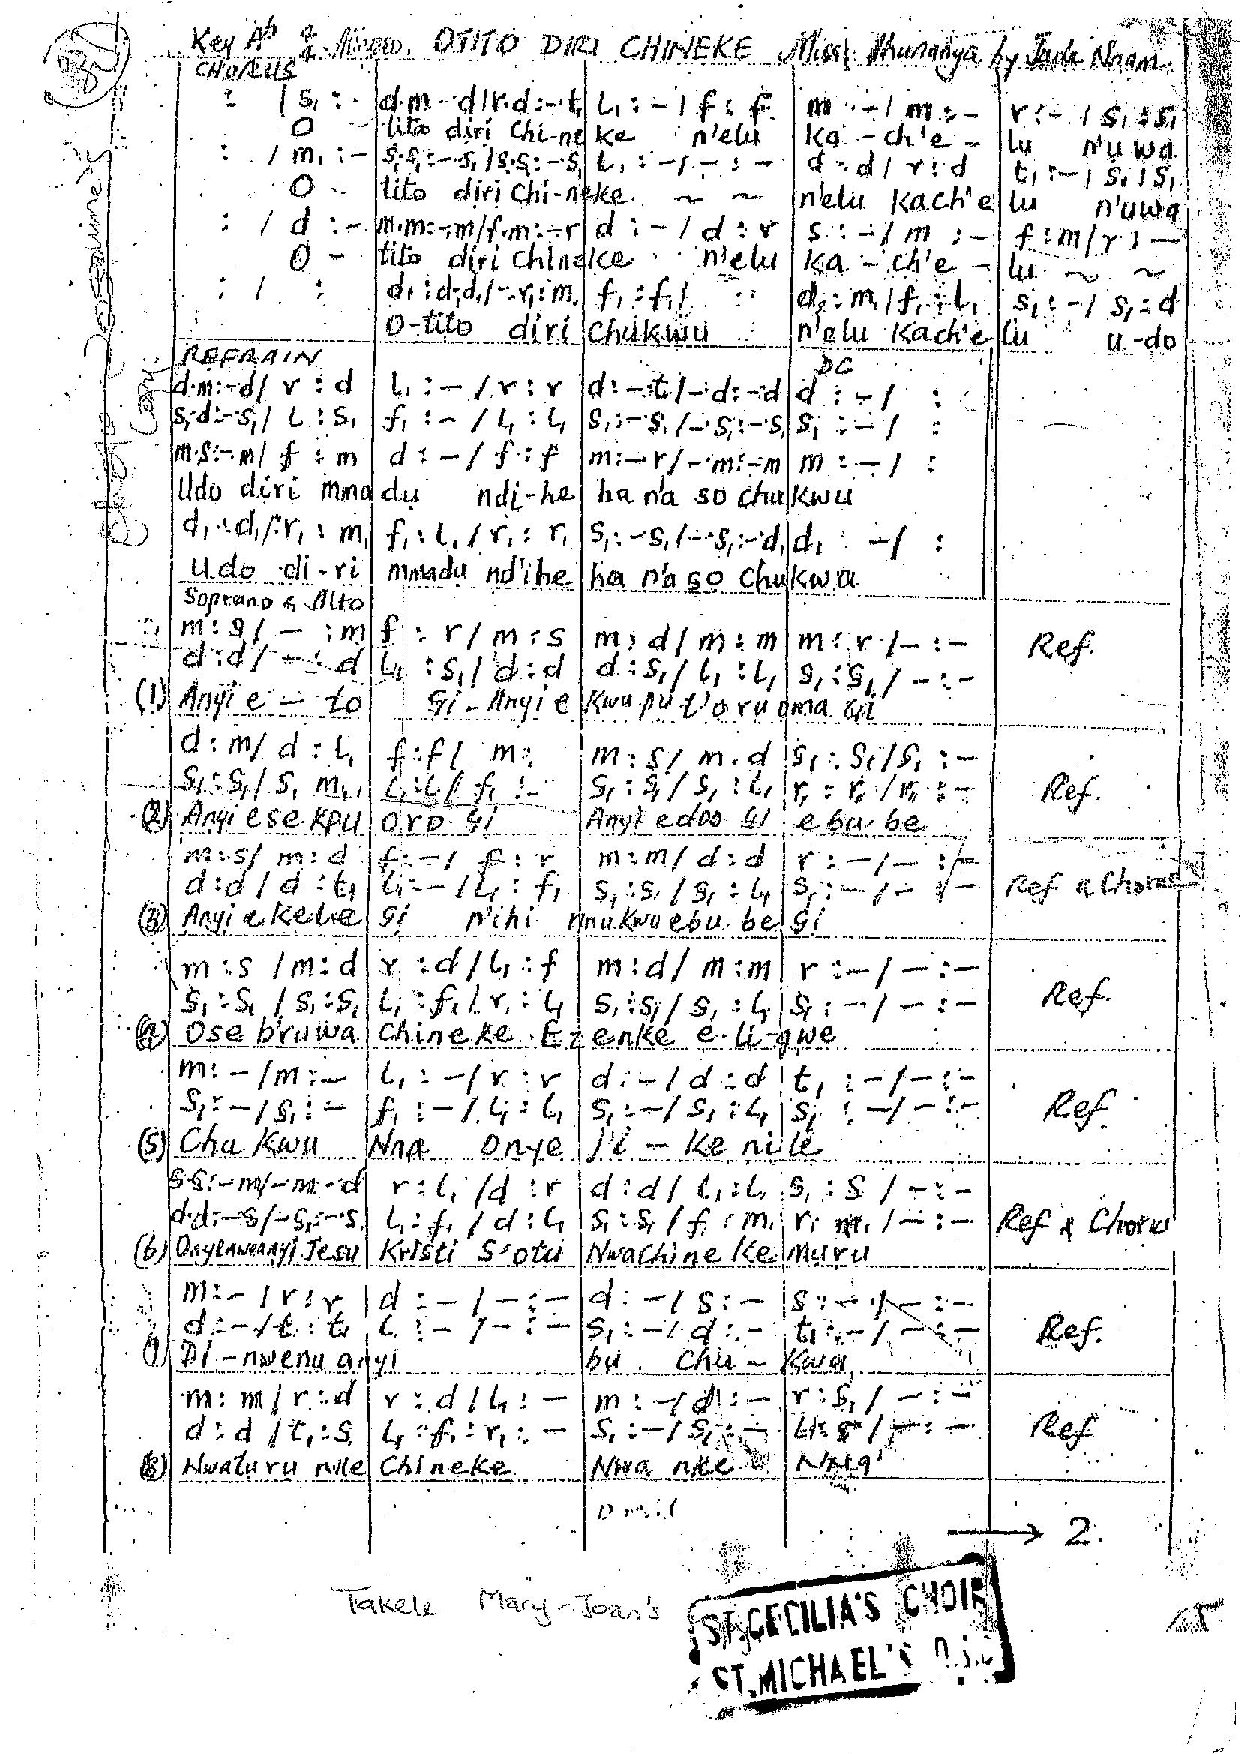 Key Ab OTITO DIRI CHINEKE Miss Ihunanya by Jude Nnam
CHORUS
: / s₁ :- | d.m :- d / r.d :- t₁ | l₁ :- / f : f | m :- / m :- | r :- / s₁ : s₁
O tito diri Chi-ne ke n'elu ka - ch'e - lu n'uwa
: / m₁ :- | s₁.s₁ :- s₁ / s₁.s₁ :- s₁ | l₁ :- / - : - | d : d / r : d | t₁ :- / s₁ : s₁
O - tito diri Chi-neke ~ ~ n'elu kach'e lu n'uwa
: / d :- | m.m :-.m / f.m :-.r | d :- / d : r | s :- / m :- | f : m / r :-
O - tito diri Chineke n'elu ka - ch'e - lu ~ ~
: / : | d₁ : d₁.d₁ / -.r₁ : m₁ | f₁ : f₁ / : | d₁ : m₁ / f₁ : l₁ | s₁ :- / s₁ : d
O-tito diri Chukwu n'elu Kach'e lu u-do
REFRAIN DC
d.m :- d / r : d | l₁ :- / r : r | d :-.t₁ / -.d :-.d | d :- / :
s₁.d :- s₁ / l : s₁ | f₁ :- / l₁ : l₁ | s₁ :-.s₁ / -.s₁ :-.s₁ | s₁ :- / :
m.s :- m / f : m | d :- / f : f | m :-.r / -.m :-.m | m :- / :
Udo diri mma du ndi-he ha na so chukwu
d₁ :-.d₁ / -.r₁ : m₁ | f₁ : l₁ / r₁ : r₁ | s₁ :-.s₁ / -.s₁ :-.d₁ | d₁ :- / :
Udo di-ri mmadu nd'ihe ha n'a so Chukwu
Soprano & Alto
m : s / - : m | f : r / m : s | m : d / m : m | m : r / - : - | Ref.
d : d / - : d | l₁ : s₁ / d : d | d : s₁ / l₁ : l₁ | s₁ : s₁ / - : -
(1) Anyi e - to Gi - Anyi e Kwupu t'oruoma Gi
d : m / d : l₁ | f : f / m : | m : s / m : d | s₁ : s₁ / s₁ : - | Ref.
s₁ : s₁ / s₁ m₁ | l₁ : l₁ / f₁ : - | s₁ : s₁ / s₁ : l₁ | r₁ : r₁ / r₁ : -
(2) Anyi ese kpu oro Gi Anyi edoo Gi ebu be
m : s / m : d | f : - / f : r | m : m / d : d | r : - / - : - | Ref & Chorus
d : d / d : t₁ | l₁ : - / l₁ : f₁ | s₁ : s₁ / s₁ : l₁ | s₁ : - / - : -
(3) Anyi ekele Gi n'ihi nnukwu ebu be Gi
m : s / m : d | r : d / l₁ : f | m : d / m : m | r : - / - : - | Ref.
s₁ : s₁ / s₁ : s₁ | l₁ : f₁ / r₁ : l₁ | s₁ : s₁ / s₁ : l₁ | s₁ : - / - : -
(4) Ose b'ruwa Chineke Ezenke e-li-gwe
m : - / m : - | l₁ : - / r : r | d : - / d : d | t₁ : - / - : - | Ref
s₁ : - / s₁ : - | f₁ : - / l₁ : l₁ | s₁ : - / s₁ : l₁ | s₁ : - / - : -
(5) Chukwu Nna Onye ji - ke nile
s.s :-.m / -.m :-.d | r : l₁ / d : r | d : d / l₁ : l₁ | s₁ : s / - : - | Ref & Chorus
d.d :-.s / -.s₁ :-.s₁ | l₁ : f₁ / d : l₁ | s₁ : s₁ / f₁ : m₁ | r₁ m₁ / - : -
(6) Onyenweanyi Jesu Kristi S'otu Nwachineke muru
m : - / r : r | d : - / - : - | d : - / s : - | s : - / - : - | Ref.
d : - / t₁ : t₁ | l₁ : - / - : - | s₁ : - / d : - | t₁ : - / - : -
(7) Di - nwenu anyi bu Chu - kwu
m : m / r : d | r : d / l₁ : - | m : - / d : - | r : s₁ / - : - | Ref
d : d / t₁ : s₁ | l₁ : f₁ : r₁ : - | s₁ : - / s₁ : -
(8) Nwaturu nke Chineke Nwa nke Nna
→ 2.
Takele Mary-Joan's
ST. CECILIA'S CHOIR
ST. MICHAEL'S